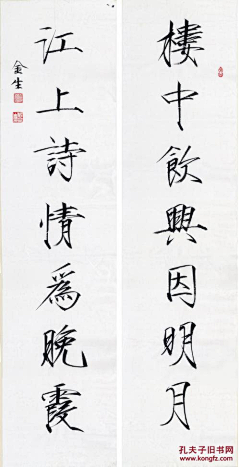 樓中飲興因明月
江上詩情為晚霞
金生
孔夫子旧书网
www.kongfz.com